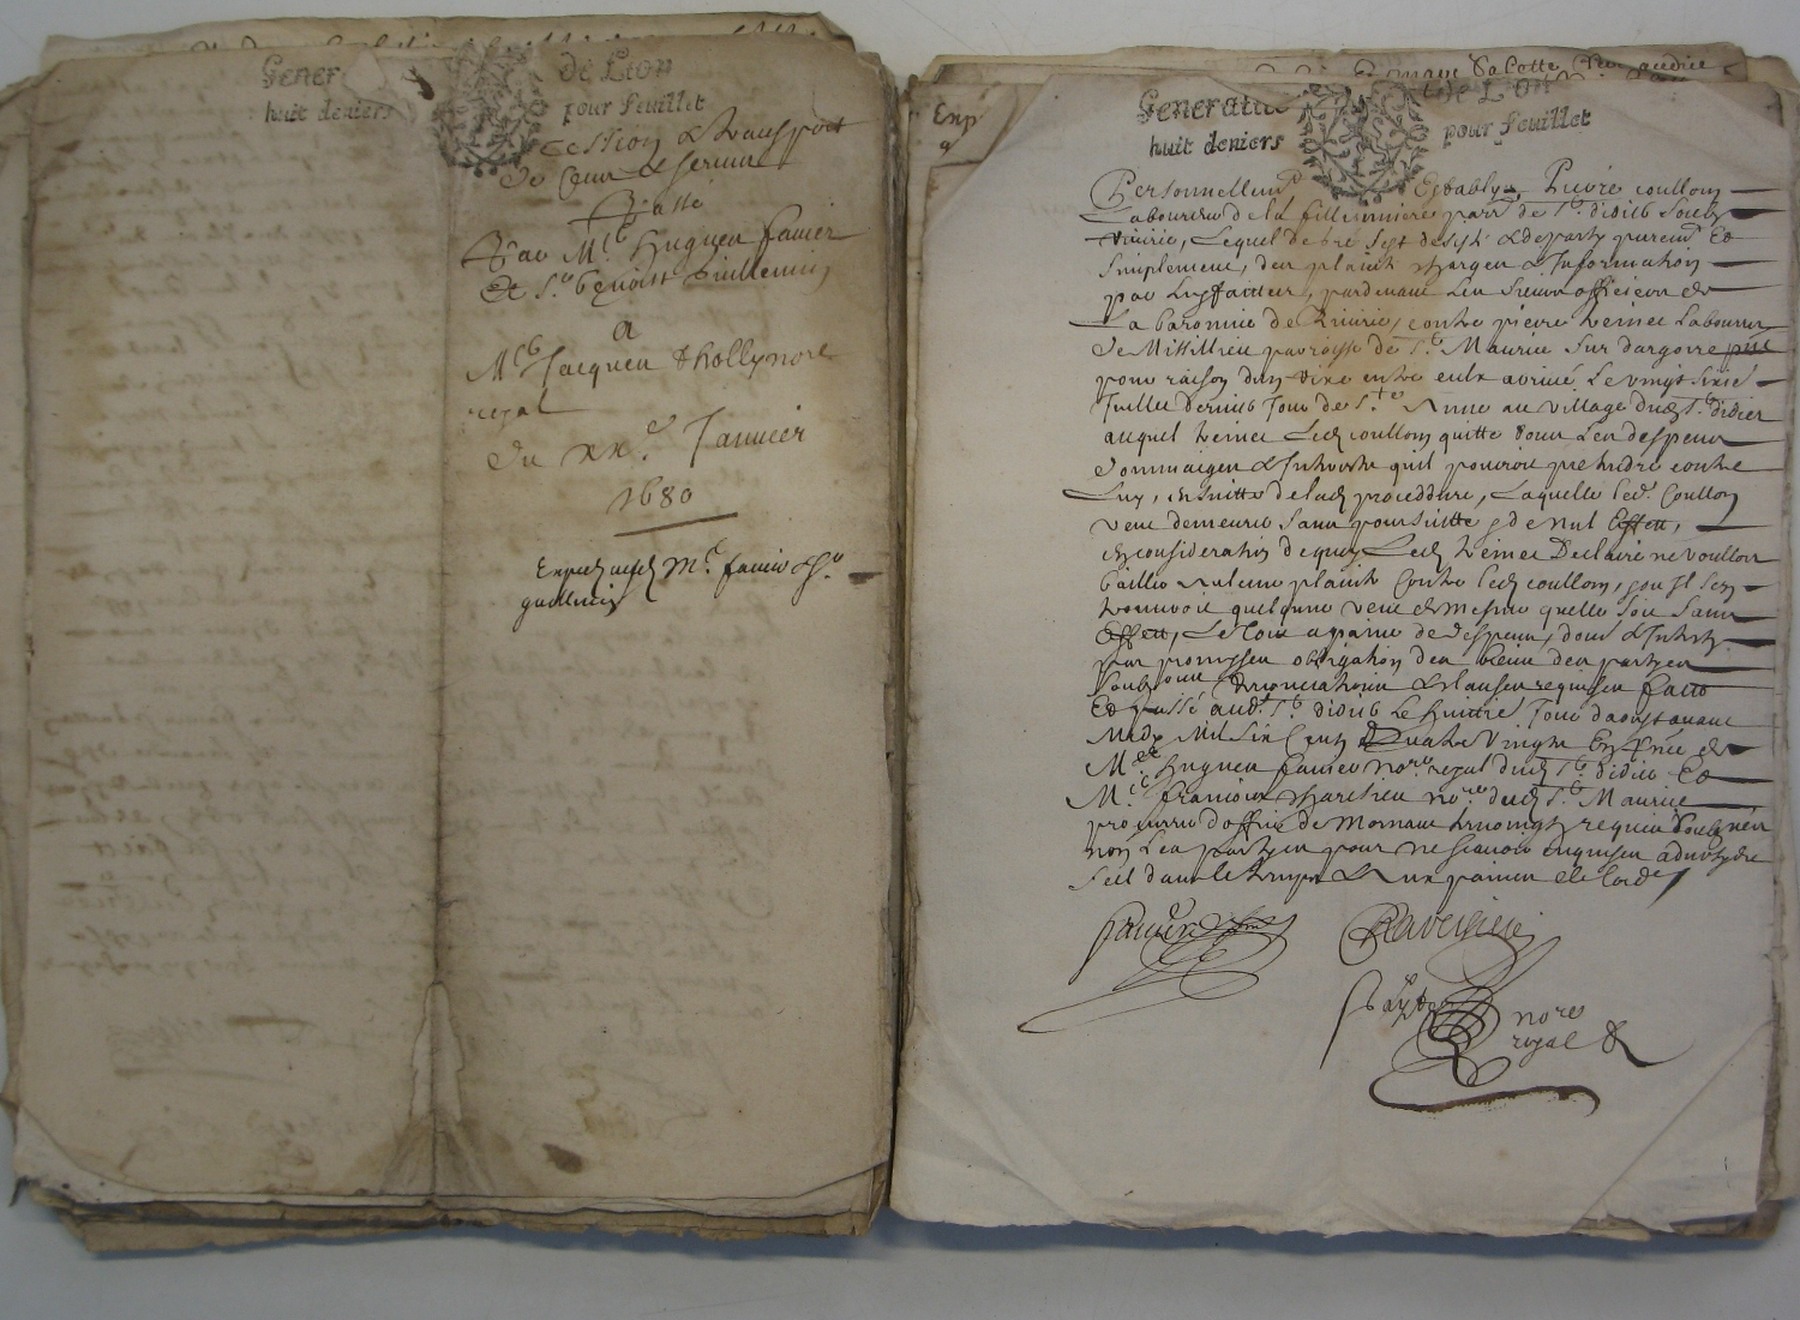 Gener de Lion
huit deniers pour feuillet
cession & transport
de cens & servis
Passé
Par Me Hugues favier
Et Sr benoist Guillemin
a
Me Jacques Tholly nore
royal
du xxe Janvier
1680
Exped ausd Me favier & Sr
guillemin
Exp
Generalite de Lion
huit deniers pour feuillet
Personnellemt Establys, Pierre coullom
Laboureur de la fillionniere parr de St didier soubz
riverie, Lequel de gré sest desisté & departy puremt Et
simplement, des plaintes charges & Informations
par luy faittes, pardevant les sieurs officiers de
La baronnie de Riverie, contre pierre Venet Laboureur
de Missillieu parroisse de St Maurice sur dargoire
pour raison dun rixe entre eulx arrivé Le vingt sixie
Juillet dernier Jour de Ste Anne au village dud St didier
auquel Venet Led coullom quitte tous les despens
dommaiges & Interestz quil pouvoit pretendre contre
Luy, ensuitte de lad proceddure, Laquelle led. Coullom
veut demeurer sans poursuitte & de nul Effett,
en consideration dequoy Led Venet Declaire ne voulloir
bailler aulcune plainte Contre led coullom, & ou Il sen
trouveroit quelqune veut de mesme quelle soit sans
Effett, Le tout a paine de despens, dom & Interestz
par promesses obligation des biens des partyes
soubz renonciations & clauses requises faict
Et passé aud. St didier Le huittie Jour daoust avant
Midy Mil six Cents Quatre Vingtz En pñce de
Me Hugues favier nore royal dud St didier Et
Me francois nore dud St Maurice
procureur doffice de Mornant tesmoingtz requis Soubznés
non Les partyes pour ne scavoir enquises
favier
nore
royal